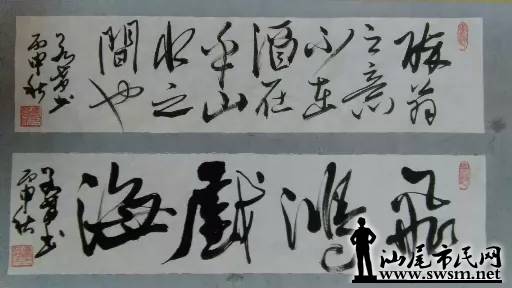 醉翁
之意
不在
酒在
乎山
水之
間也
丙申秋
飛鴻戲海
丙申秋
汕尾市民网
www.swsm.net